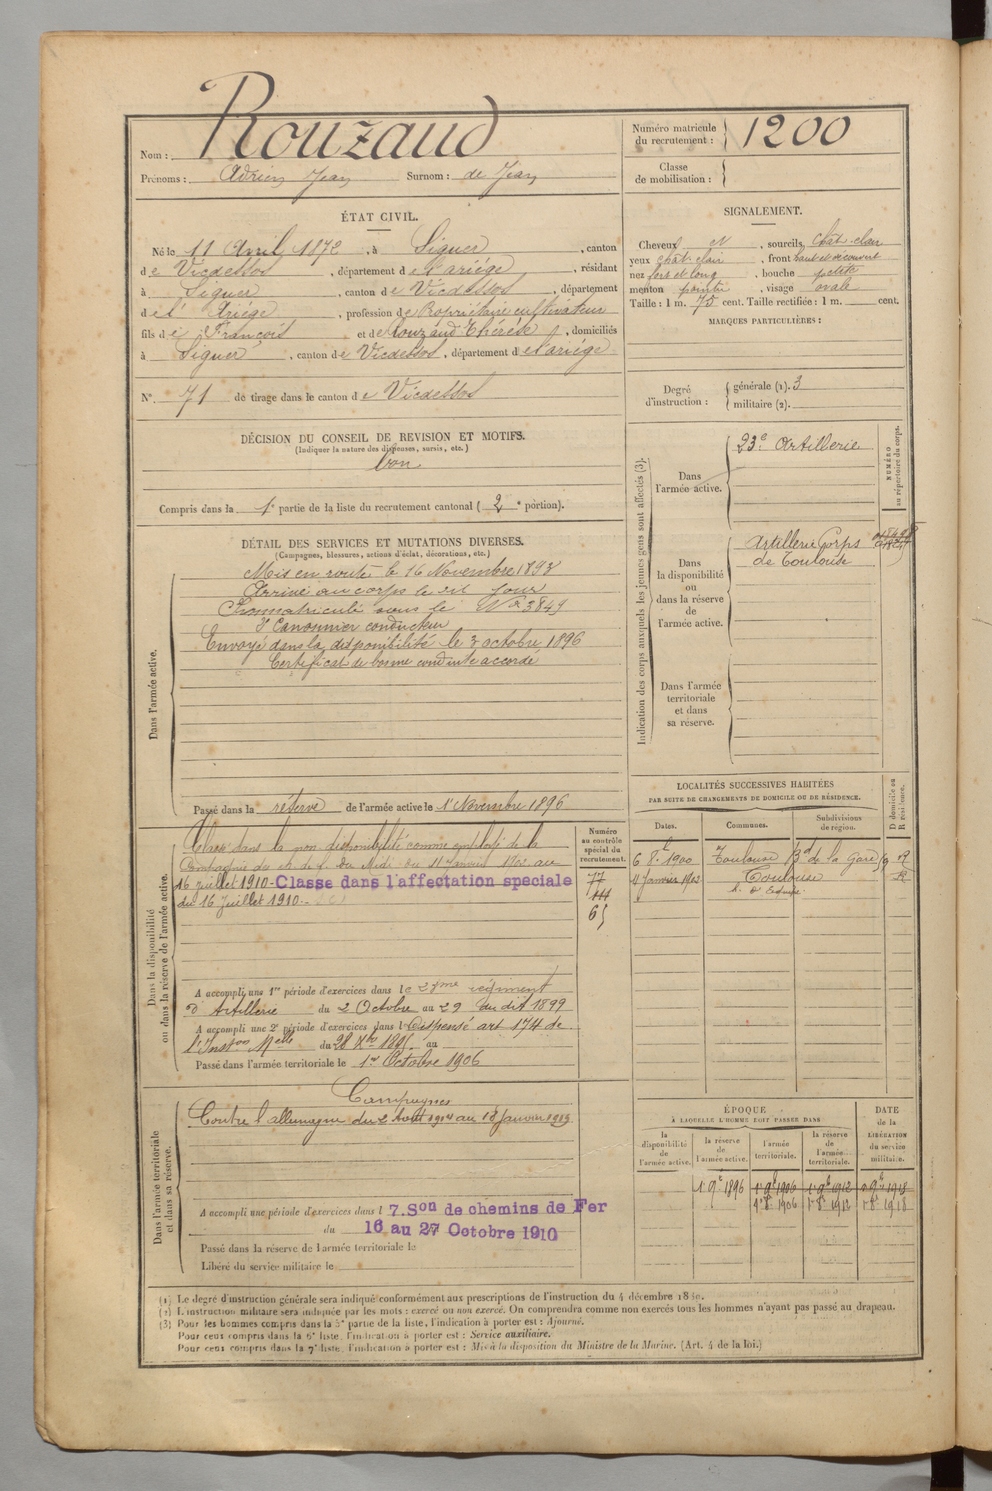 Nom : Rouzaud
Prénoms : Adrien Jean Surnom : de Jean
Numéro matricule du recrutement : 1200
Classe de mobilisation :
ÉTAT CIVIL.
Né le 11 Avril 1872, à Siguer, canton
de Vicdessos, département de l'ariége, résidant
à Siguer, canton de Vicdessos, département
de l' Ariége, profession de Propriétaire cultivateur
fils de François et de Rouzaud Thérèse, domiciliés
à Siguer, canton de Vicdessos, département de l'ariége
N° 71 de tirage dans le canton de Vicdessos
SIGNALEMENT.
Cheveux et, sourcils chât-clair
yeux chât clair, front haut et découvert
nez fort et long, bouche petite
menton pointu, visage ovale
Taille : 1 m. 75 cent. Taille rectifiée : 1 m. cent.
MARQUES PARTICULIÈRES :
Degré d'instruction : générale (1). 3
militaire (2).
DÉCISION DU CONSEIL DE REVISION ET MOTIFS.
(Indiquer la nature des dispenses, sursis, etc.)
bon
Compris dans la 1e partie de la liste du recrutement cantonal (2e portion).
DÉTAIL DES SERVICES ET MUTATIONS DIVERSES.
(Campagnes, blessures, actions d'éclat, décorations, etc.)
Dans l'armée active.
Mis en route le 16 Novembre 1893
Arrivé au corps le dit jour
Immatriculé sous le N° 3849
2e Canonnier conducteur
Envoyé dans la disponibilité le 3 octobre 1896
Certificat de bonne conduite accordé
Passé dans la réserve de l'armée active le 1er Novembre 1896
Indication des corps auxquels les jeunes gens sont affectés (3).
NUMÉRO au répertoire du corps.
Dans l'armée active.
23e Artillerie
Dans la disponibilité ou dans la réserve de l'armée active.
Artillerie Corps
de Toulouse
Dans l'armée territoriale et dans sa réserve.
LOCALITÉS SUCCESSIVES HABITÉES
PAR SUITE DE CHANGEMENTS DE DOMICILE OU DE RÉSIDENCE.
Dates. Communes. Subdivisions de région. D domicile ou R résidence.
6 8e 1900 Toulouse Bd de la Gare 19 R
11 Janvier 1902 Toulouse R
Dans la disponibilité ou dans la réserve de l'armée active.
Numéro au contrôle spécial du recrutement.
77
65
Classé dans la non disponibilité comme employé de la
Compagnie des ch. de f. du Midi du 11 Janvier 1902 au
16 juillet 1910 - Classé dans l'affectation speciale
du 16 Juillet 1910.
A accompli une 1re période d'exercices dans le 23me régiment
d'Artillerie du 2 Octobre au 29 du dit 1899
A accompli une 2e période d'exercices dans l Dispensé art 174 de
l'Inston Melle du 28 Xbre 1895 au
Passé dans l'armée territoriale le 1er Octobre 1906
Dans l'armée territoriale et dans sa réserve.
Campagnes
Contre l'allemagne du 2 Août 1914 au 18 Janvier 1919
A accompli une période d'exercices dans l 7.Son de chemins de Fer
du 16 au 27 Octobre 1910
Passé dans la réserve de l'armée territoriale le
Libéré du service militaire le
ÉPOQUE
A LAQUELLE L'HOMME DOIT PASSER DANS
DATE de la LIBÉRATION du service militaire.
la disponibilité de l'armée active. la réserve de l'armée active. l'armée territoriale. la réserve de l'armée territoriale.
1e 9e 1896 1e 9e 1906 1e 9e 1912 1e 9e 1918
1e 8e 1906 1e 8e 1912 1e 8e 1918
(1) Le degré d'instruction générale sera indiqué conformément aux prescriptions de l'instruction du 4 décembre 1889.
(2) L'instruction militaire sera indiquée par les mots : exercé ou non exercé. On comprendra comme non exercés tous les hommes n'ayant pas passé au drapeau.
(3) Pour les hommes compris dans la 5e partie de la liste, l'indication à porter est : Ajourné.
Pour ceux compris dans la 6e liste, l'indication à porter est : Service auxiliaire.
Pour ceux compris dans la 7e liste, l'indication à porter est : Mis à la disposition du Ministre de la Marine. (Art. 4 de la loi.)